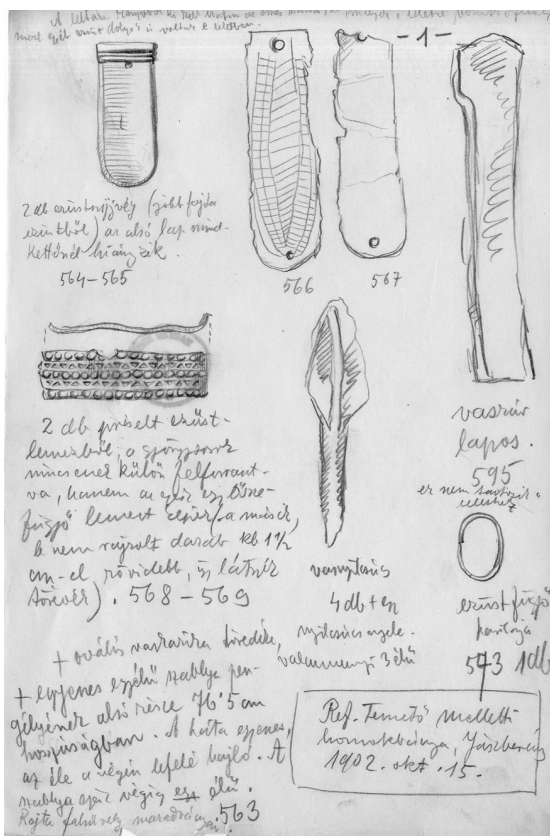 - 1 -
2 db ezüstszíjvég (jobbfajta
ezüstből) az alsó lap mind-
kettőnél hiányzik.
564-565
566
567
2 db préselt ezüst-
lemezből, a gyöngysorok
nincsenek külön felforraszt-
va, hanem az egész egy össze-
függő lemezt képez (a másik,
le nem rajzolt darab kb 1 1/2
cm-el rövidebb, új látszik
törévér). 568-569
vasnyílcsúcs
4 db + egy
nyílcsúcs nyele.
valamennyi 3 élű
vaszár
lapos.
595
ez nem tartozik a
lelethez
ezüst függő
karikája
573 1db
+ ovális vaskarika töredék,
+ egyenes egyélű szablya pen-
géjének alsó része 76.5 cm
hosszúságban. A háta egyenes,
az éle a végén lefelé hajló. A
szablya szár végig egy élű.
Rajta fahüvely maradványai. 563
Ref. Temető melletti
homokbánya, Jászberény
1902. okt. 15.